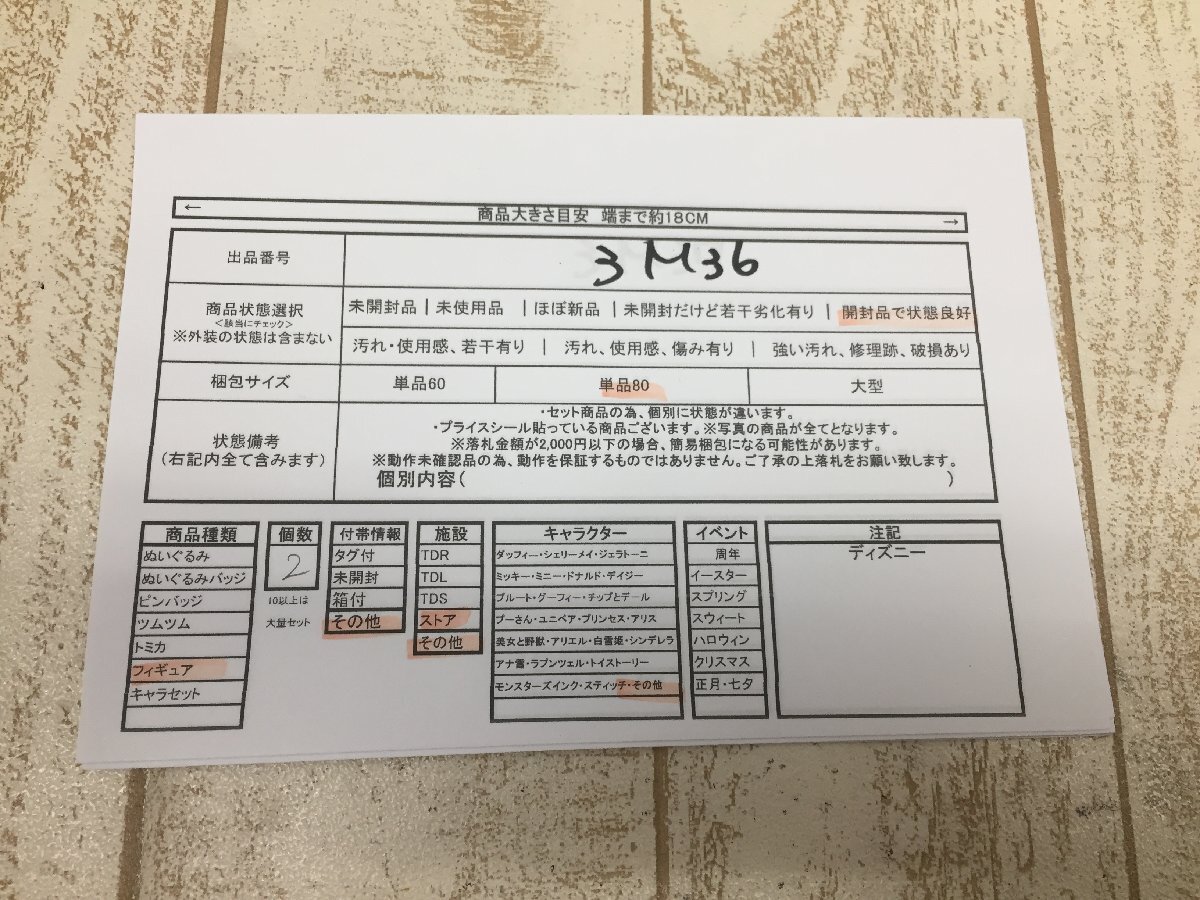 ← 商品大きさ目安 端まで約18CM →
出品番号 3M36
商品状態選択
<該当にチェック>
※外装の状態は含まない
未開封品 | 未使用品 | ほぼ新品 | 未開封だけど若干劣化有り | 開封品で状態良好
汚れ・使用感、若干有り | 汚れ、使用感、傷み有り | 強い汚れ、修理跡、破損あり
梱包サイズ 単品60 単品80 大型
状態備考
(右記内全て含みます)
・セット商品の為、個別に状態が違います。
・プライスシール貼っている商品ございます。※写真の商品が全てとなります。
※落札金額が2,000円以下の場合、簡易梱包になる可能性があります。
※動作未確認品の為、動作を保証するものではありません。ご了承の上落札をお願い致します。
個別内容( )
商品種類
ぬいぐるみ
ぬいぐるみバッジ
ピンバッジ
ツムツム
トミカ
フィギュア
キャラセット
個数
2
10以上は
大量セット
付帯情報
タグ付
未開封
箱付
その他
施設
TDR
TDL
TDS
ストア
その他
キャラクター
ダッフィー・シェリーメイ・ジェラトーニ
ミッキー・ミニー・ドナルド・デイジー
プルート・グーフィー・チップとデール
プーさん・ユニベア・プリンセス・アリス
美女と野獣・アリエル・白雪姫・シンデレラ
アナ雪・ラプンツェル・トイストーリー
モンスターズインク・スティッチ・その他
イベント
周年
イースター
スプリング
スウィート
ハロウィン
クリスマス
正月・七夕
注記
ディズニー